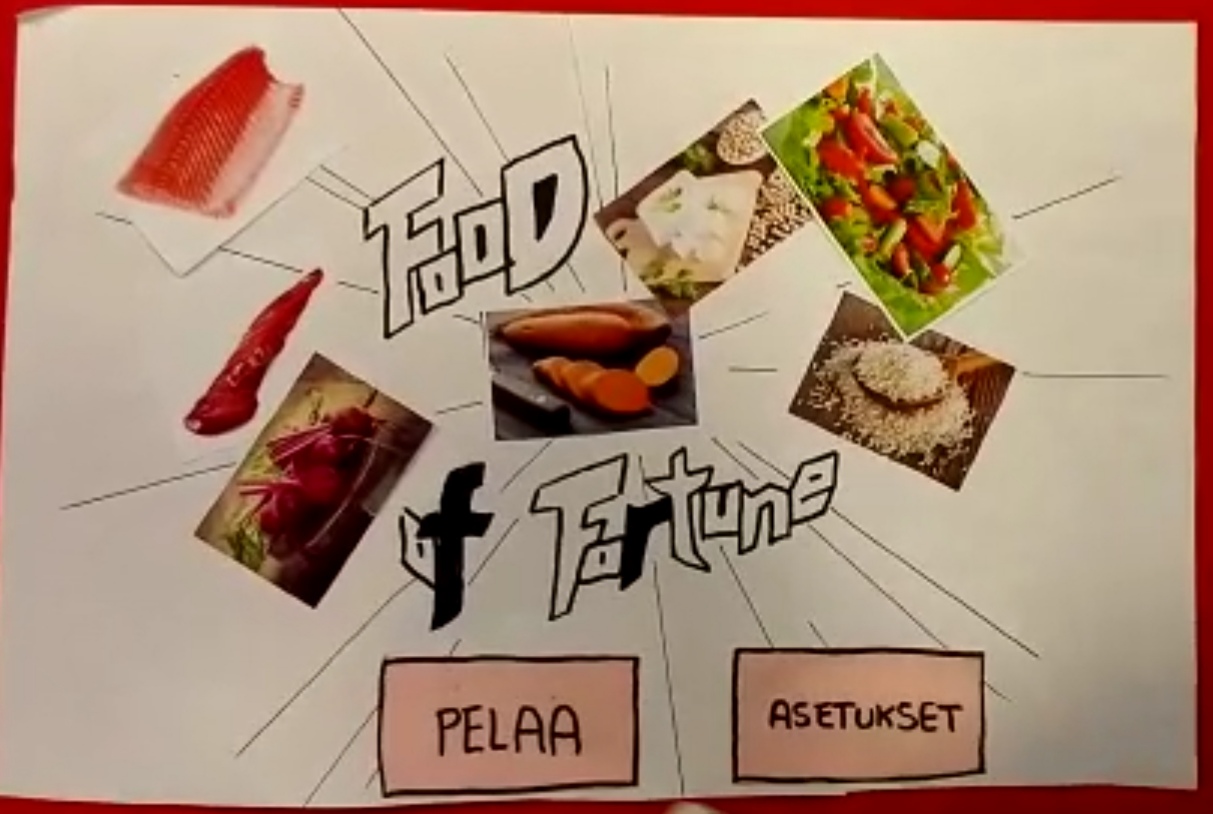 FooD
of Fortune
PELAA
ASETUKSET